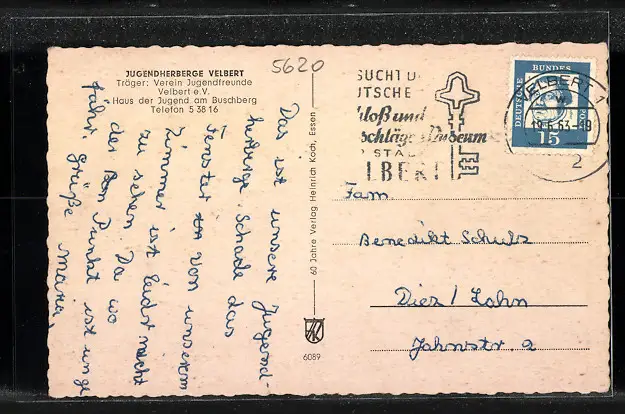 JUGENDHERBERGE VELBERT
Träger: Verein Jugendfreunde
Velbert e.V.
Haus der Jugend am Buschberg
Telefon 5 38 16
5620
Das ist unsere Jugend-
herberge. Schade das
Fenster von unserem
Zimmer ist leider nicht
zu sehen. Da wo
der Punkt ist unge
fähr. Grüße Maria,
60 Jahre Verlag Heinrich Koch, Essen
6089
SUCHT D
UTSCHE
hloß und
schläge Museum
STA
LBERT
VELBERT 1
19.6.63-18
2
DEUTSCHE BUNDESPOST
15
Fam.
Benedikt Schulz
Diez / Lahn
Jahnstr. 2